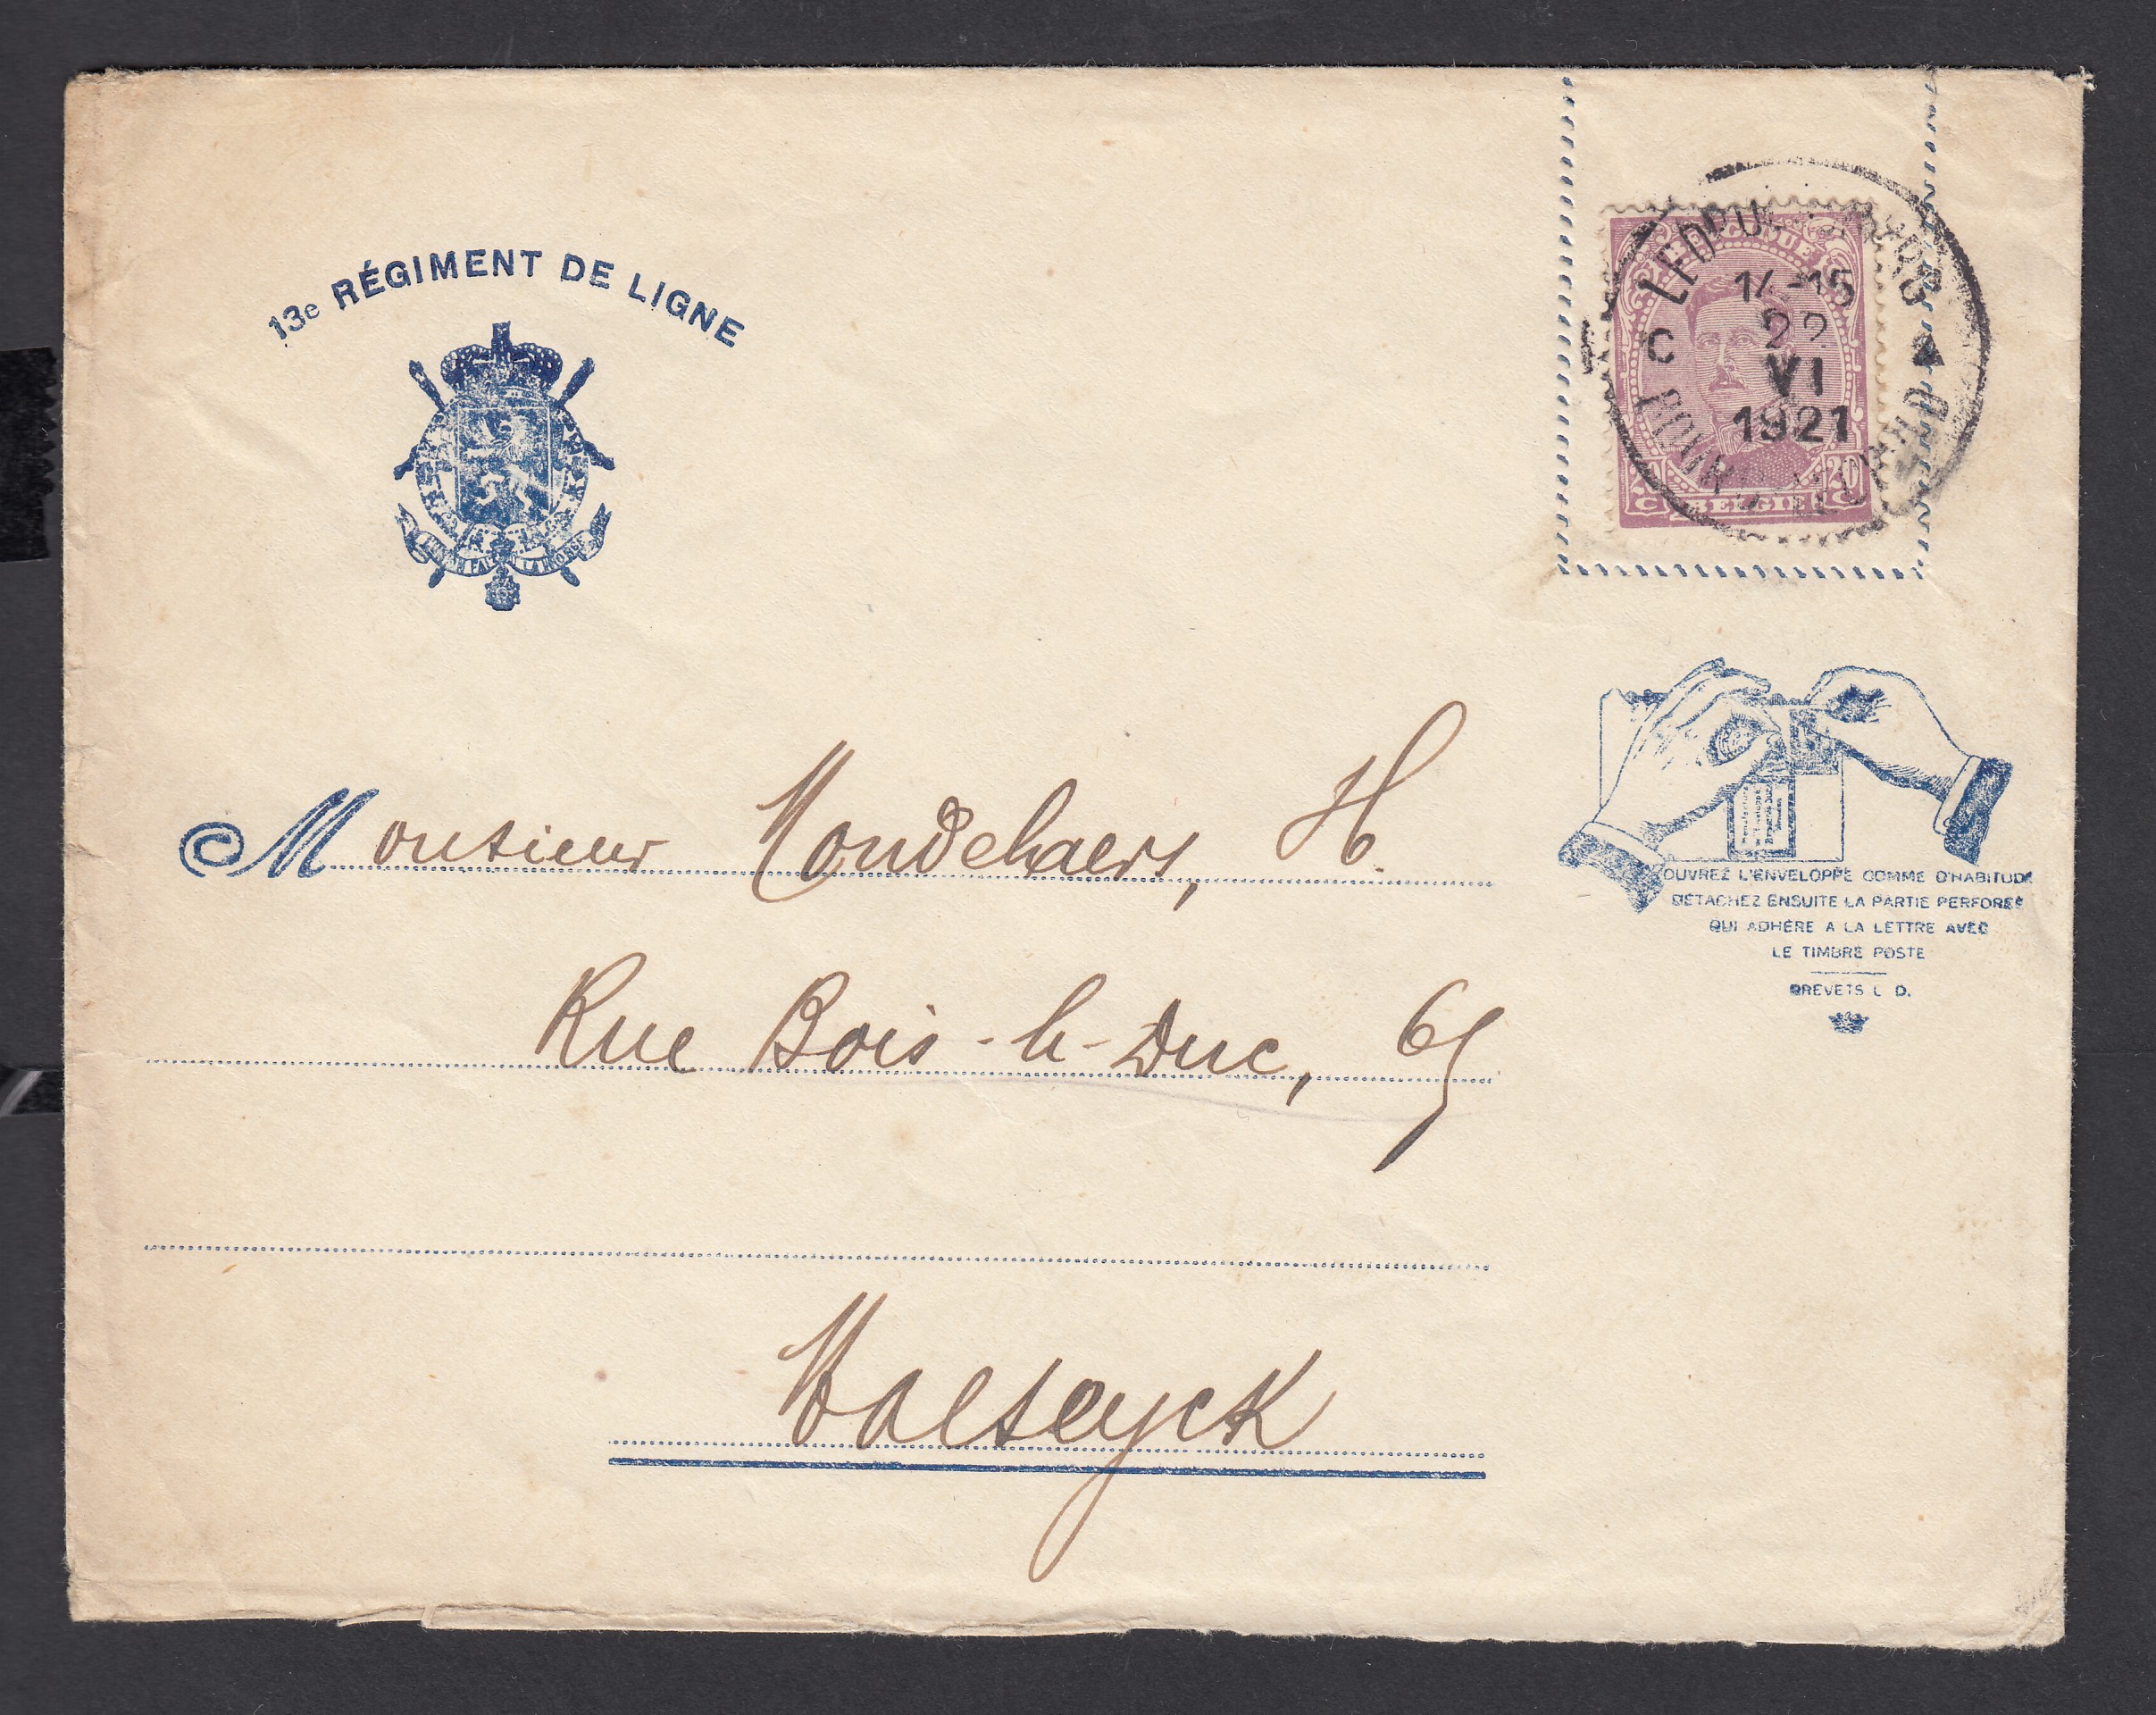 13e RÉGIMENT DE LIGNE
BELGIQUE
14-15
22
VI
1921
C
20
C BELGIË C
Monsieur Mondelaers, H.
OUVREZ L'ENVELOPPE COMME D'HABITUDE
DÉTACHEZ ENSUITE LA PARTIE PERFORÉE
QUI ADHÈRE A LA LETTRE AVEC
LE TIMBRE POSTE
BREVETS L. D.
Rue Bois-le-Duc, 65
Maeseyck